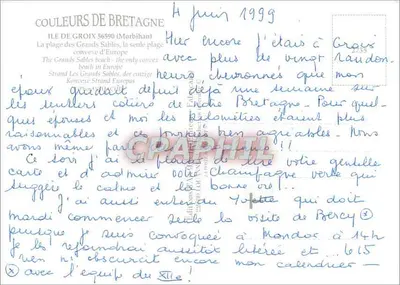 COULEURS DE BRETAGNE
4 juin 1999
ILE DE GROIX 56590 (Morbihan)
La plage des Grands Sables, la seule plage
convexe d'Europe
The Grands Sables beach - the only convex
beach in Europe
Strand Les Grands Sables, der einzige
Konvexe Strand Europas
Hier encore j'étais à Groix
avec plus de vingt randon-
neurs chevronnés que mon
époux guidait depuis déjà une semaine sur
les sentiers cotiers de notre Bretagne - Pour quel-
ques épouses et moi les kilomètres étaient plus
raisonnables et les journées très agréables - Nous
avons même
CPAPHIL
Ce soir j'ai le plaisir de lire votre gentille
carte et d'admirer votre champagne verte qui
suggère le calme et la bonne vie!..
J'ai aussi entendu Yvette qui doit
mardi commencer seule la visite de Bercy (*)
puisque je suis convoquée à Mondor à 14h
je les rejoindrai aussitôt libérée et ... le 15
rien n'obscurcit encore mon calendrier -
(*) avec l'équipe du XIIe!